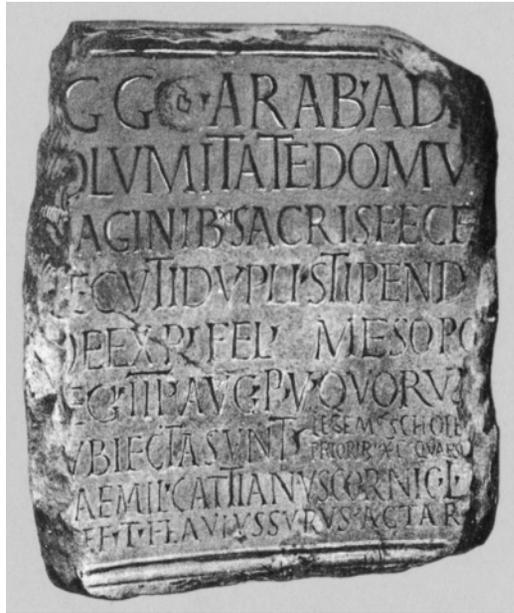 GG ARAB AD
OLVMITATEDOMV
AGINIB SACRISFECE
ECVTIDVPLISTIPEND
DEEXP FEL MESOPO
EG III P AVG P V QVORV
VBIECTASVNT
SCHOLE
AEMIL CATTIANVSCORNICL
EF T FLAVIVSSVRVS ACTAR